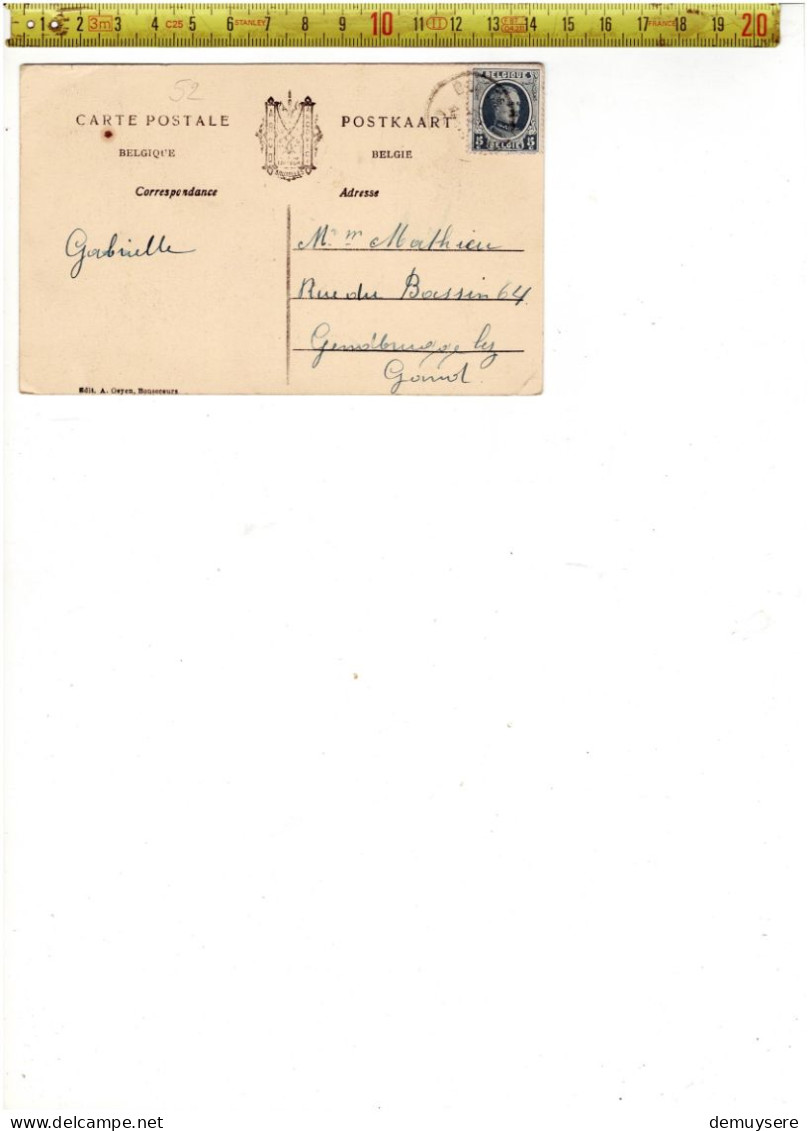 1 2 3m 3 4 C25 5 6 STANLEY 7 8 9 10 11 II 12 13 14 15 16 17 FRANCE 18 19 20
52
CARTE POSTALE
POSTKAART
BELGIQUE
BELGIE
Correspondance
Adresse
BELGIQUE
BELGIE
Gabrielle
Mr Mathieu
Rue du Bassin 64
Gendbrugge lez
Gand
Edit. A. Geyen,
demuysere